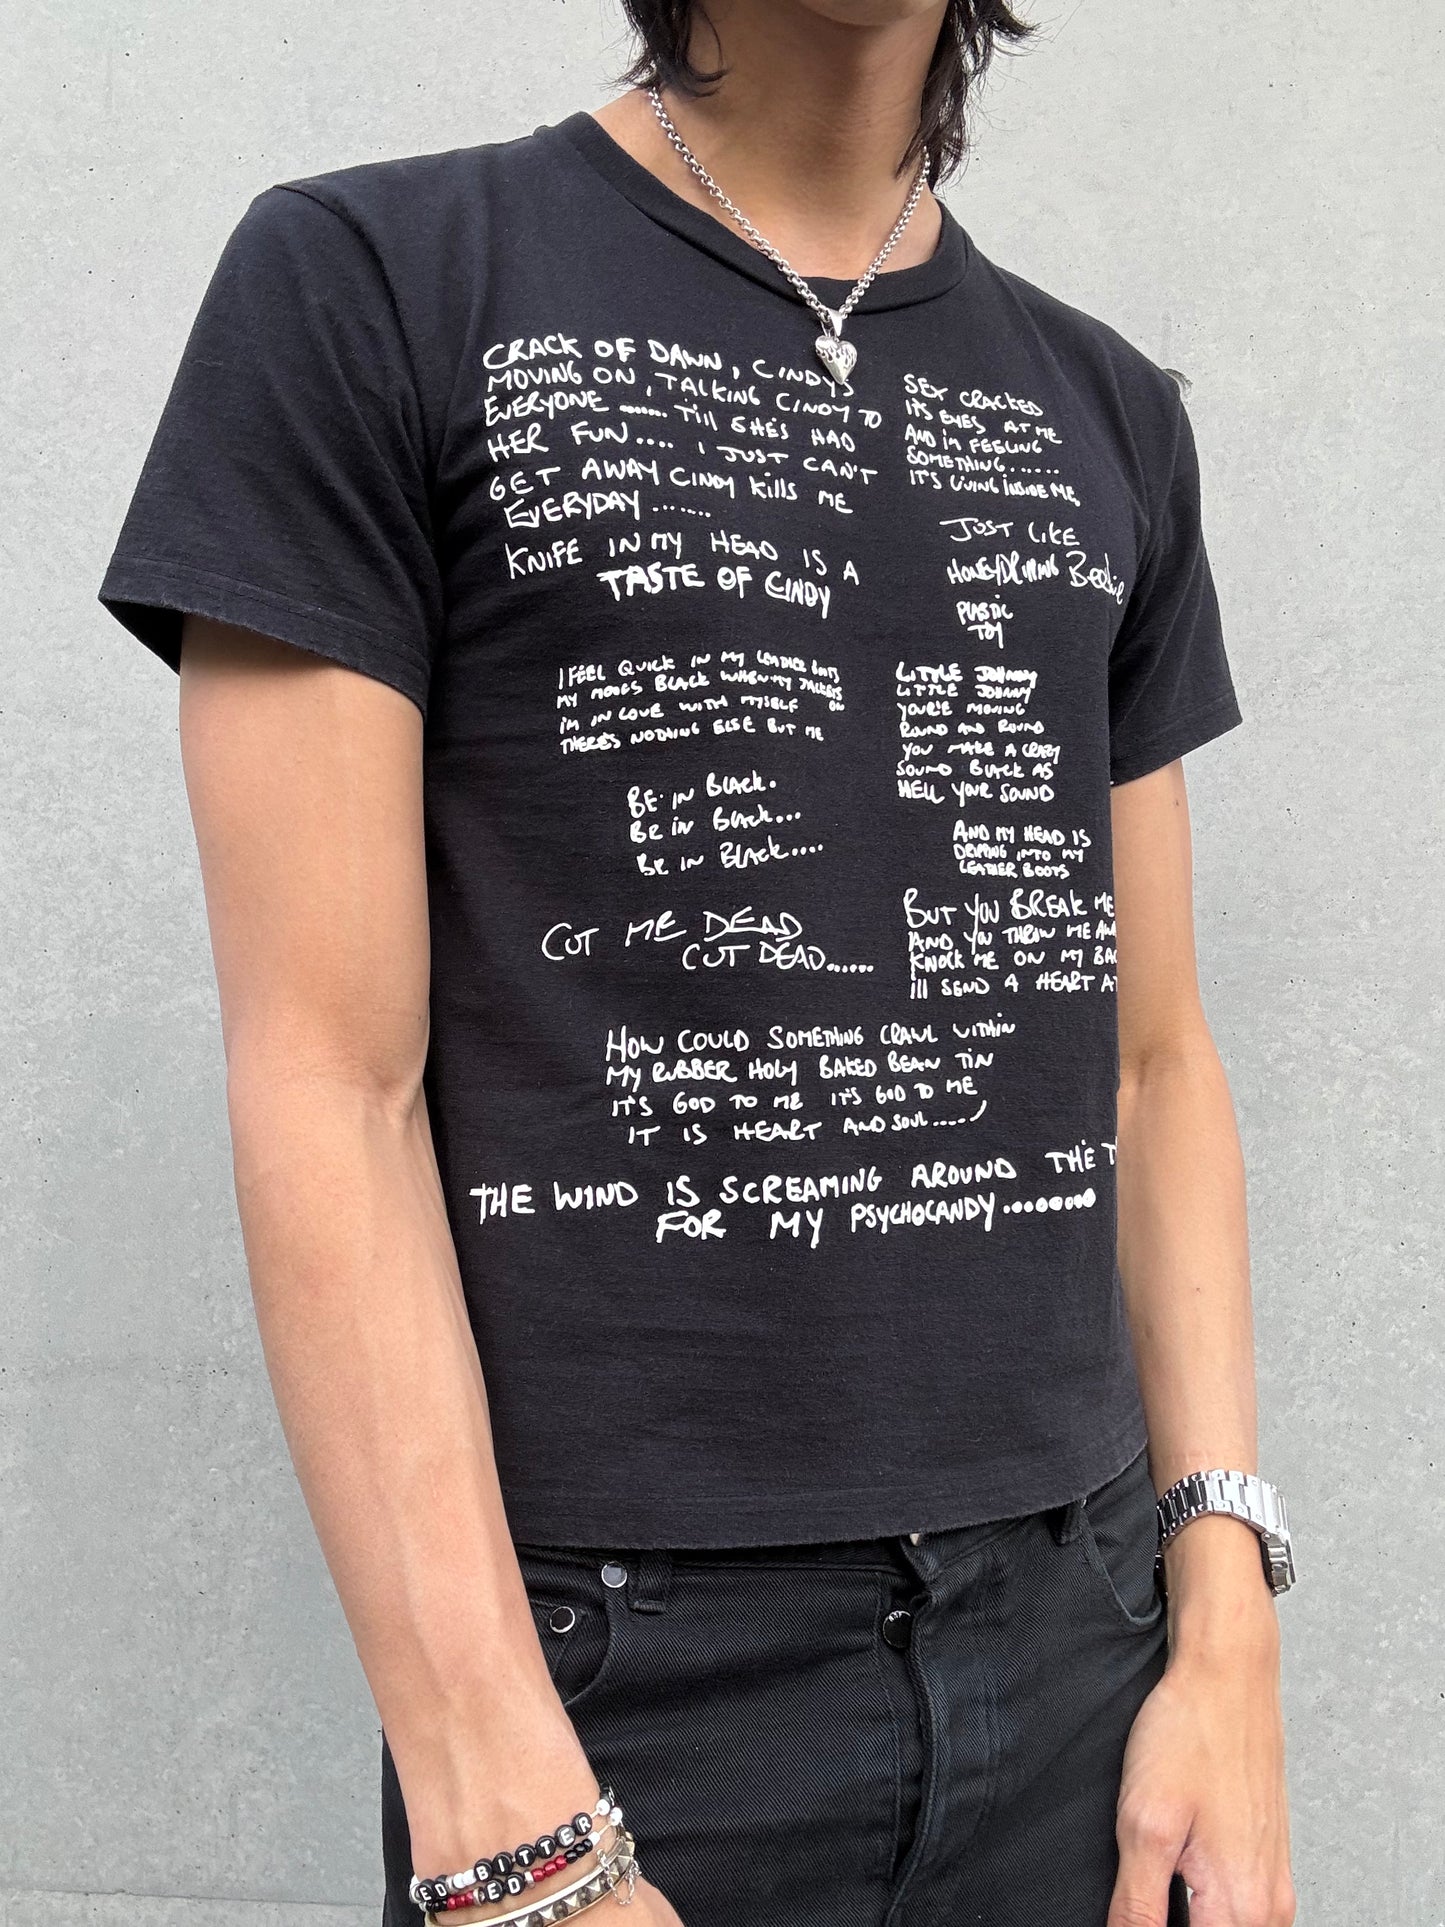 CRACK OF DAWN, CINDYS
MOVING ON, TALKING CINDY TO
EVERYONE ....... Till SHES HAD
HER FUN.... I JUST CAN'T
GET AWAY CINDY Kills ME
EVERYDAY .......
KNIFE IN MY HEAD IS A
TASTE OF CINDY
I FEEL QUICK IN MY LEATHER BOOTS
MY MOODS BLACK WHEN MY JACKETS ON
I'M IN LOVE WITH MYSELF
THERE'S NOTHING ELSE BUT ME
BE IN BLACK.
BE IN BLACK...
BE IN BLACK....
CUT ME DEAD
CUT DEAD......
SEX CRACKED
ITS EYES AT ME
AND I'M FEELING
SOMETHING......
IT'S LIVING INSIDE ME.
JUST LIKE
HONEYDRIPPING Beebie
PLASTIC
TOY
LITTLE JOHNNY
LITTLE JOHNNY
YOUR'E MOVING
ROUND AND ROUND
YOU MAKE A CRAZY
SOUND BLACK AS
HELL YOUR SOUND
AND MY HEAD IS
DRIPPING INTO MY
LEATHER BOOTS
BUT YOU BREAK ME
AND YOU THROW ME AWA
KNOCK ME ON MY BAC
ILL SEND A HEART AT
HOW COULD SOMETHING CRAWL WITHIN
MY RUBBER HOLY BAKED BEAN TIN
IT'S GOD TO ME IT'S GOD TO ME
IT IS HEART AND SOUL.....
THE WIND IS SCREAMING AROUND THE T
FOR MY PSYCHOCANDY.........
BITTER
ED ED